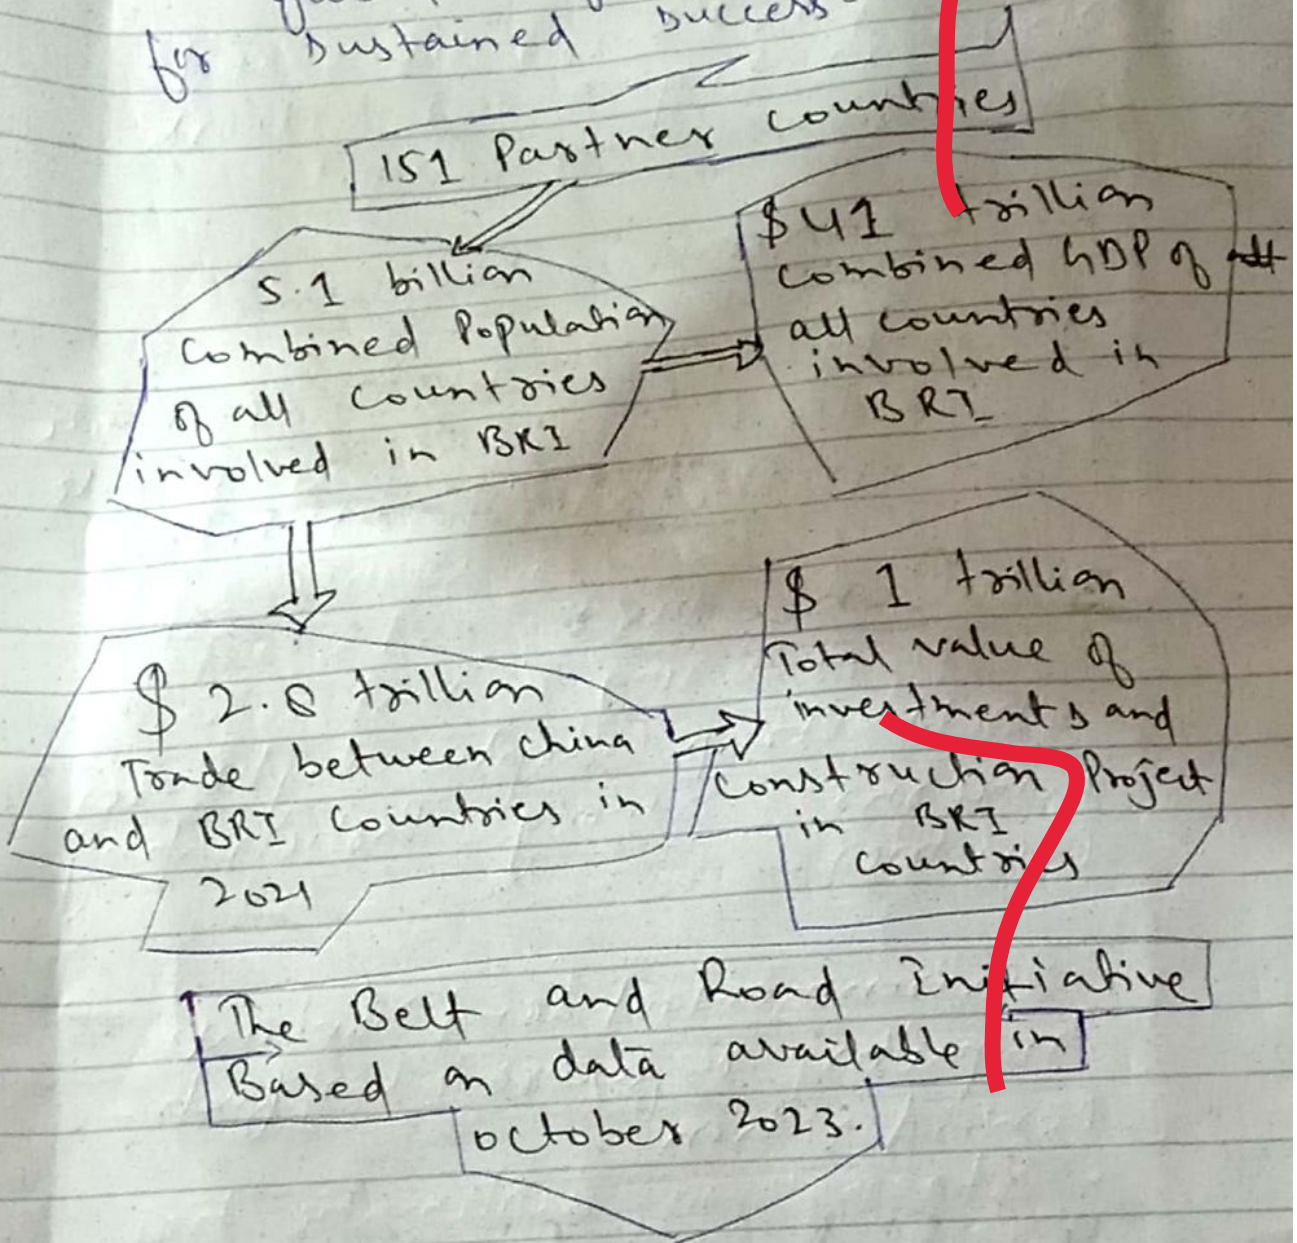 for sustained success
151 Partner countries
5.1 billion
combined Population
of all countries
involved in BRI
$41 trillion
combined GDP of
all countries
involved in
BRI
$ 2.8 trillion
Trade between china
and BRI countries in
2021
$ 1 trillion
Total value of
investments and
construction Project
in BRI
countries
The Belt and Road Initiative
Based on data available in
october 2023.